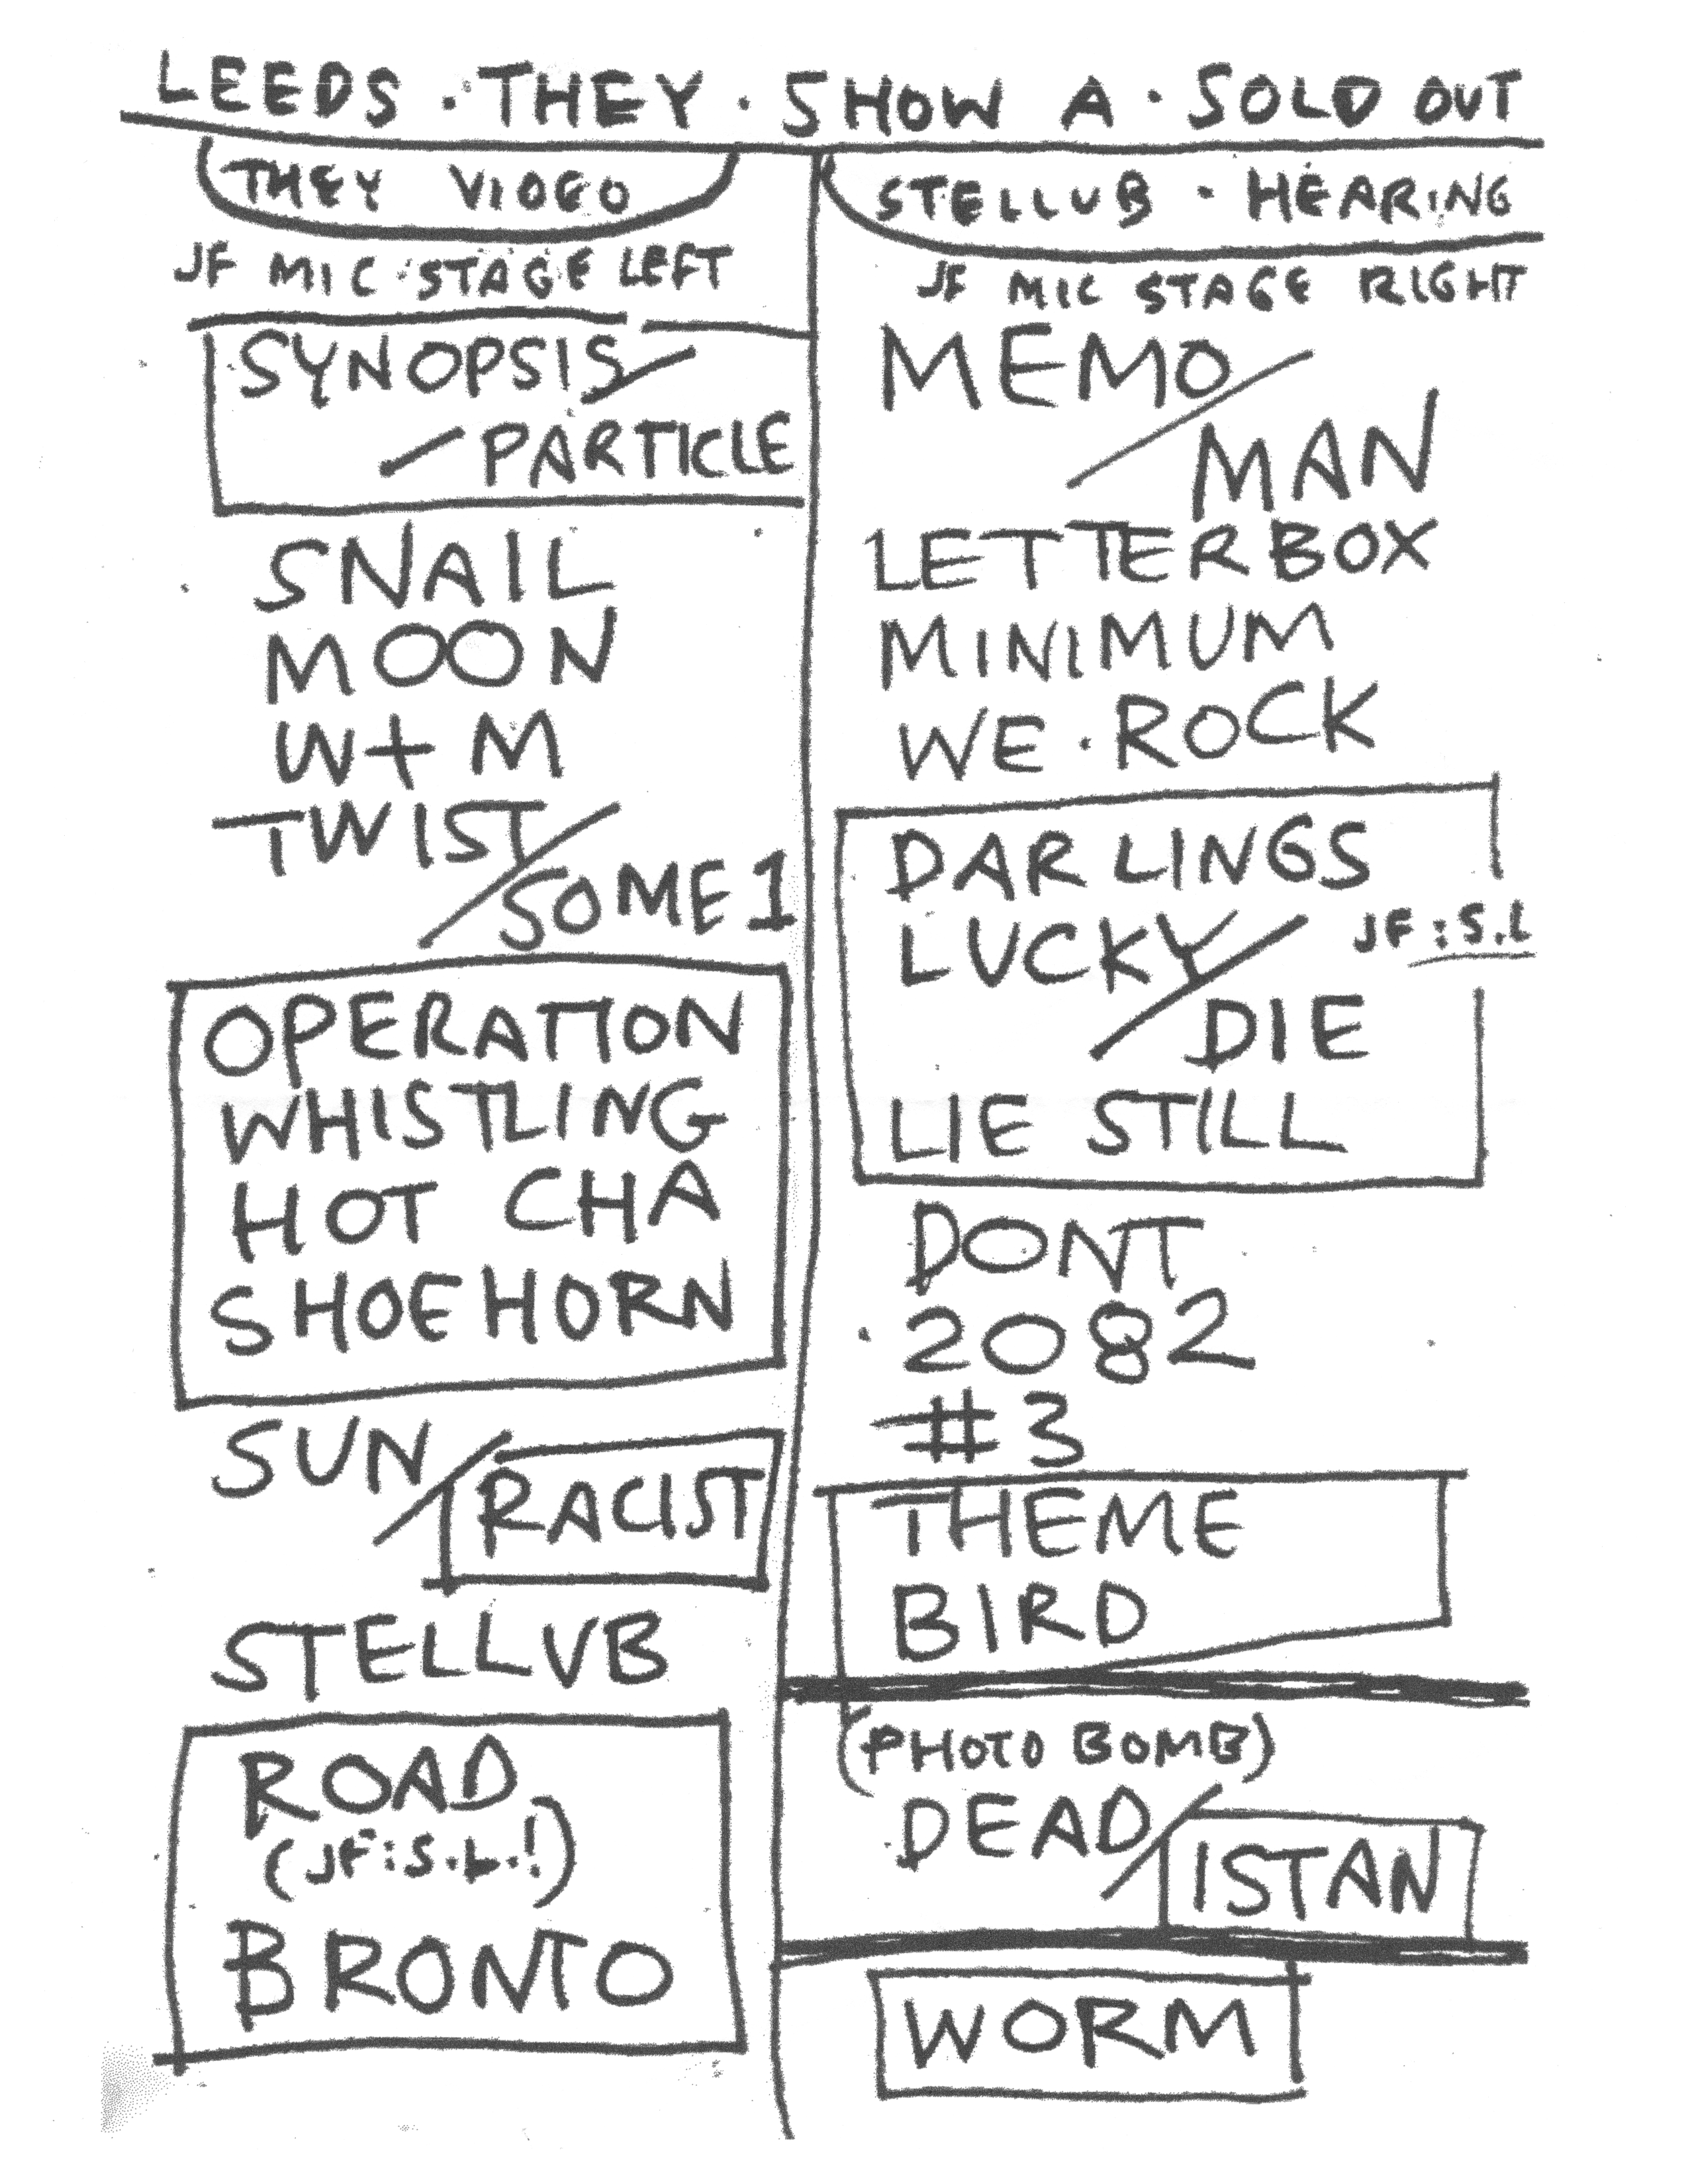 LEEDS · THEY · SHOW A · SOLD OUT
THEY VIDEO
JF MIC STAGE LEFT
SYNOPSIS /
/ PARTICLE
SNAIL
MOON
W+M
TWIST /
SOME 1
OPERATION
WHISTLING
HOT CHA
SHOEHORN
SUN / RACIST
STELLUB
ROAD
(JF:S.L.!)
BRONTO
STELLUB · HEARING
JF MIC STAGE RIGHT
MEMO /
MAN
LETTERBOX
MINIMUM
WE · ROCK
DARLINGS
LUCKY / JF:S.L
DIE
LIE STILL
DONT
2082
#3
THEME
BIRD
(PHOTO BOMB)
DEAD / ISTAN
WORM